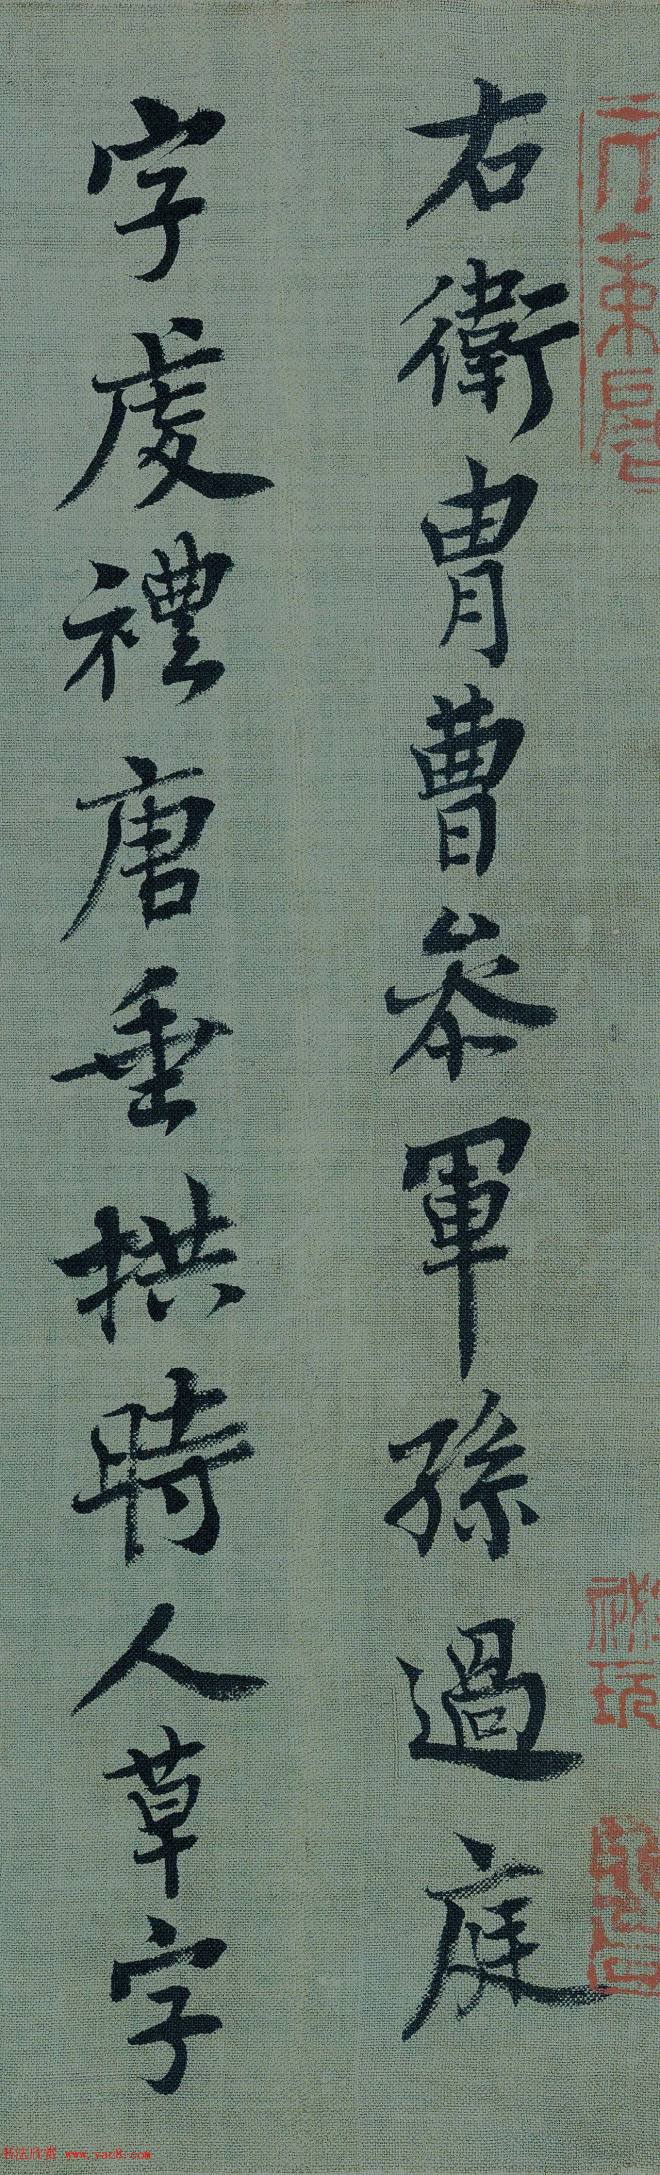 右衛冑曹參軍孫過庭
字虔禮唐垂拱時人草字
祕玩
书法欣赏 www.yac8.com